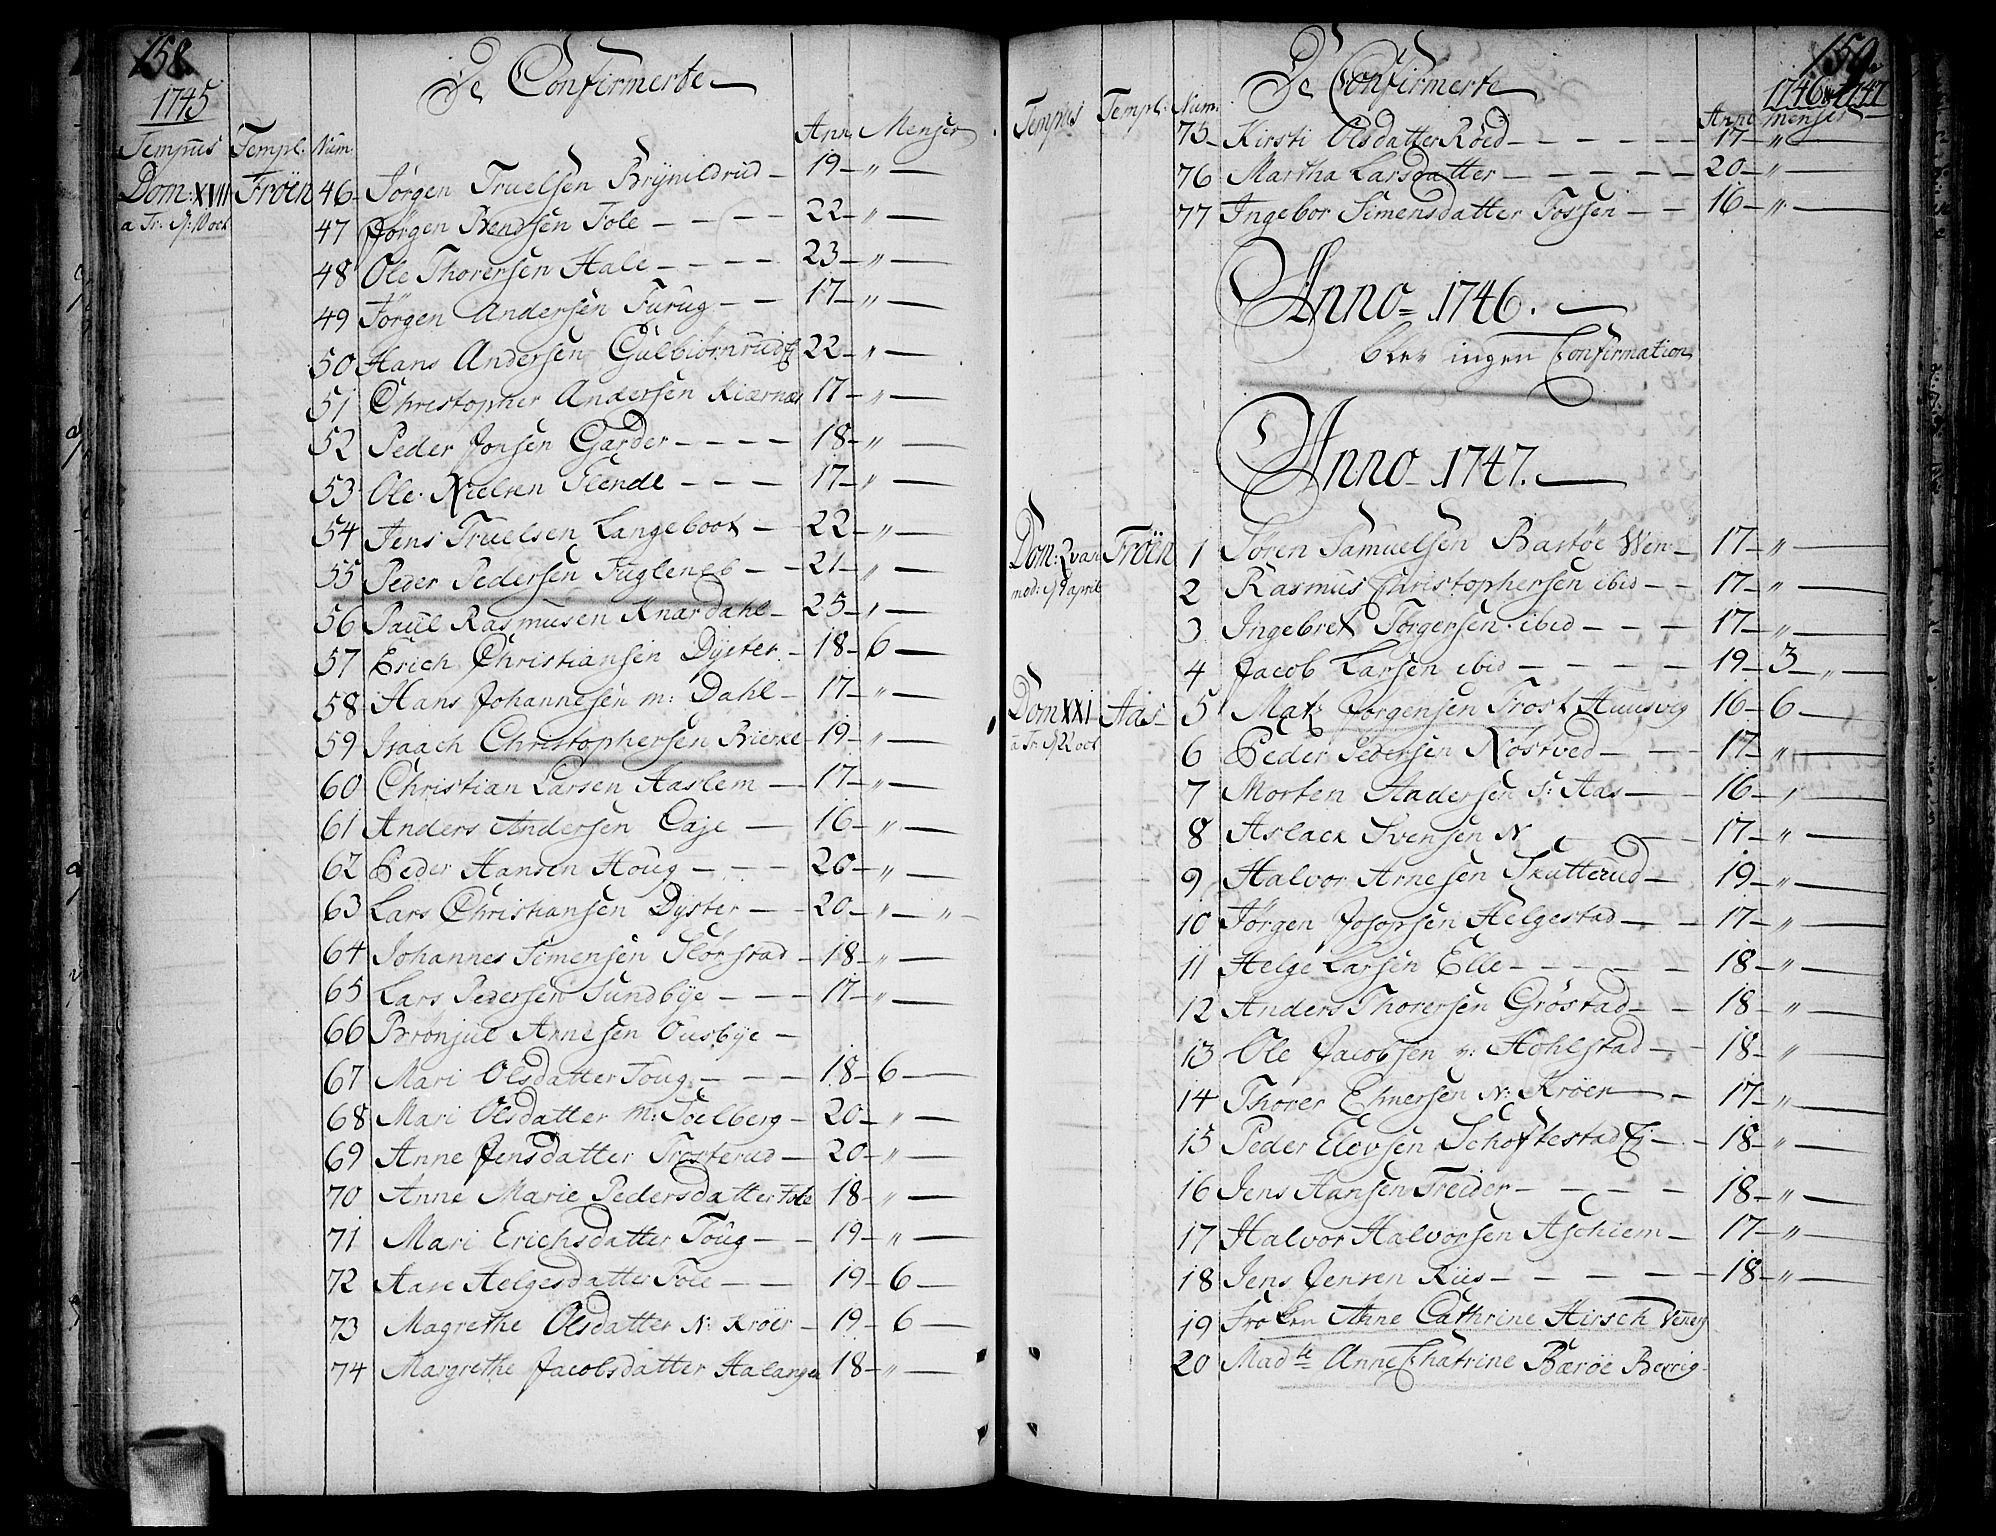 158.
1745
De Confirmerte
Tempus Templ: Num Ann Menser
Dom: XVII Fröen 46 Jørgen Truelsen Brÿnildrud 19 "
a Tr: 47 Jørgen Bendsen Tole 22 "
48 Ole Thorersen Hale 23 "
49 Jørgen Andersen Furug 17 "
50 Hans Andersen Gulbiörnrud 22 "
51 Christopher Andersen Kiærnæs 17 "
52 Peder Jonsen Garder 18 "
53 Ole Nielsen Tiende 17 "
54 Jens Truelsen Langeboot 22 "
55 Peder Pedersen Fugleneb 21 "
56 Paul Rasmusen Knardahl 25 "
57 Erich Christiansen Dyster 18 6
58 Hans Johannesen m: Dahl 17 "
59 Isaach Christophersen Bierke 19 "
60 Christian Larsen Aaslem 17 "
61 Anders Andersen Caje 16 "
62 Peder Hansen Houg 26 "
63 Lars Christiansen Dyster 20 "
64 Johannes Simensen Slörstad 18 "
65 Lars Pedersen Sundbÿe 17 "
66 Bronjul Arnesen Ousbÿe
67 Mari Olsdatter Toug 18 6
68 Mari Olsdatter m: Toelberg 20 "
69 Anne Jensdatter Trosterud 20 "
70 Anne Marie Pedersdatter Tole 18 "
71 Mari Erichsdatter Toug 19 "
72 Aase Helgesdatter Tole 19 6
73 Magrethe Olsdatter N: Kröer 19 6
74 Margrethe Jacobsdatter Halangen 18 "
159.
1746 1747
De Confirmerte
Tempus Templ: Num. Anni menses
75 Kirsti Olsdatter Röed 17 "
76 Martha Larsdatter 20 "
77 Ingebor Simensdatter Fossen 16 "
Anno 1746.
blev ingen Confirmation
Anno 1747.
Dom: Qvasi Fröen 1 Sören Samuelsen Bastöe Wen 17 "
mod: 9 april 2 Rasmus Christophersen ibid 17 "
3 Ingebret Törgersen ibid 17 "
4 Jacob Larsen ibid 19 3 "
Dom XXI Aas 5 Mats Jörgensen Trost Huusvig 16 6
a Tr: 6 Peder Pedersen Röstved 17 "
7 Morten Andersen S: Aas 16 "
8 Aslack Svensen N 17 "
9 Halvor Arnesen Skutterud 19 "
10 Jörgen Josopsen Helgestad 17 "
11 Helge Larsen Elle 18 "
12 Anders Thorersen Gröstad 18 "
13 Ole Jacobsen Hohlstad 18 "
14 Thorer Elmersen N: Kröer 17 "
15 Peder Elevsen Schoftestad 18 "
16 Jens Hansen Treider 18 "
17 Halvor Halvorsen Aschiem 17 "
18 Jens Jensen Riis 18 "
19 Fröken Anne Cathrine Hirsch
20 Madlle Anne Chatrine Bæröe